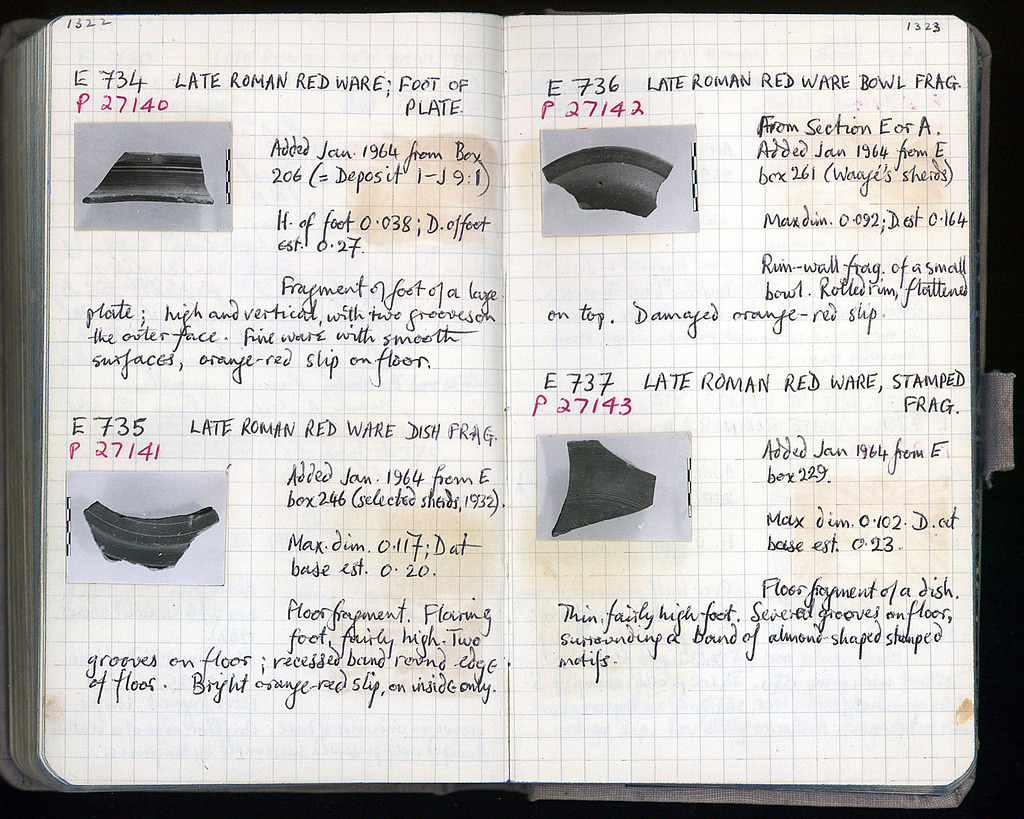 1322
E 734 LATE ROMAN RED WARE; FOOT OF
P 27140 PLATE.
Added Jan. 1964 from Box
206 (= Deposit I-J 9:1)
H. of foot 0.038; D. of foot
est. 0.27.
Fragment of foot of a large
plate; high and vertical, with two grooves on
the outer face. Fine ware with smooth
surfaces, orange-red slip on floor.
E 735 LATE ROMAN RED WARE DISH FRAG.
P 27141
Added Jan. 1964 from E
box 246 (selected sherds, 1932).
Max. dim. 0.117; D at
base est. 0.20.
Floor fragment. Flaring
foot, fairly high. Two
grooves on floor; recessed band round edge
of floor. Bright orange-red slip, on inside only.
1323
E 736 LATE ROMAN RED WARE BOWL FRAG.
P 27142
From Section E or A.
Added Jan 1964 from E
box 261 (Waagé's sherds)
Max dim. 0.092; D est 0.164
Rim-wall frag. of a small
bowl. Rolled rim, flattened
on top. Damaged orange-red slip.
E 737 LATE ROMAN RED WARE, STAMPED
P 27143 FRAG.
Added Jan 1964 from E
box 229.
Max dim. 0.102. D. at
base est. 0.23.
Floor fragment of a dish.
Thin, fairly high foot. Several grooves on floor,
surrounding a band of almond-shaped stamped
motifs.